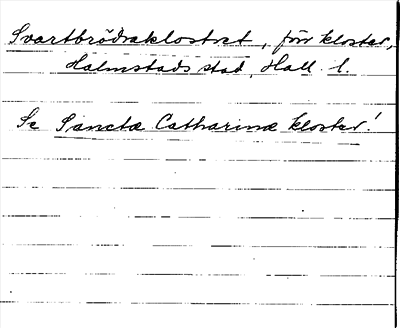 Svartbrödraklostret, förr kloster,
Halmstads stad, Hall. l.
Se Sancta Catharina kloster!